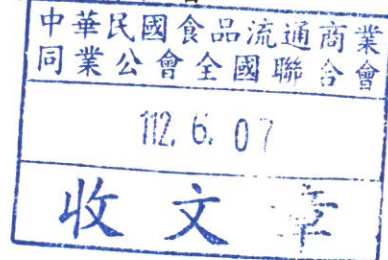 中華民國食品流通商業
同業公會全國聯合會
112. 6. 07
收文章